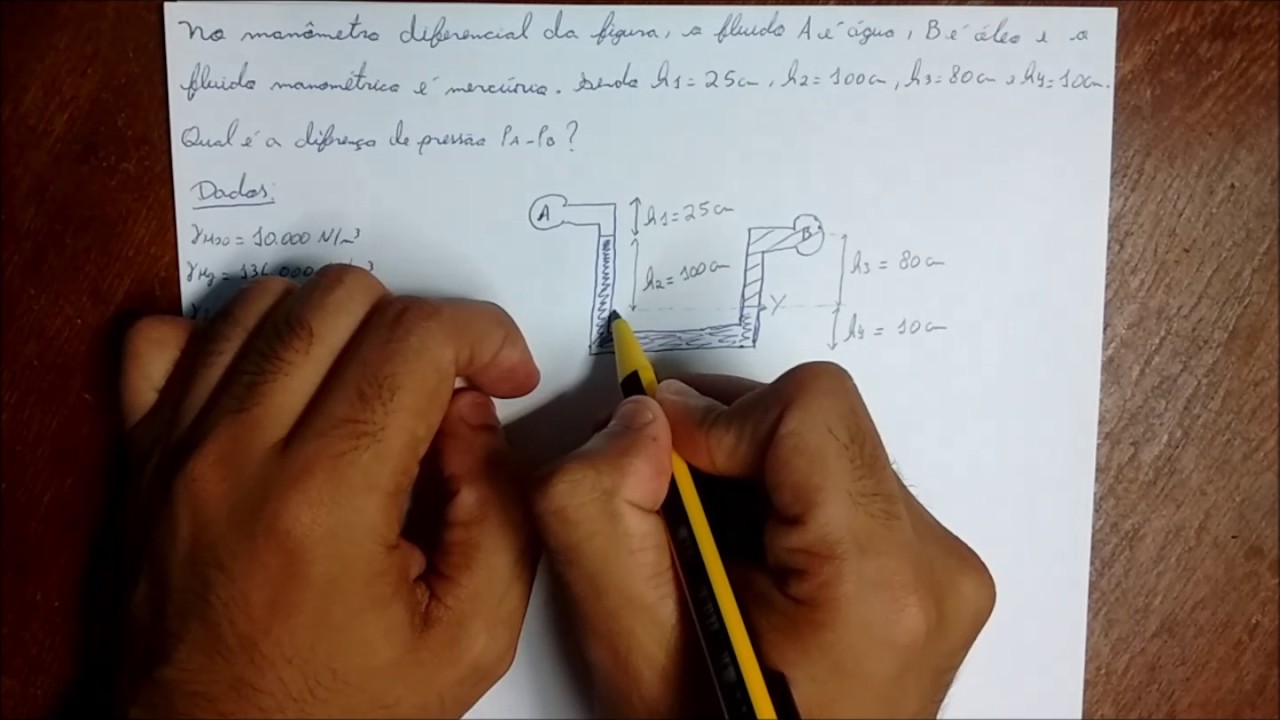 No manômetro diferencial da figura, o fluido A é água, B é óleo e o
fluido manométrico é mercúrio. Sendo h1 = 25cm, h2 = 100cm, h3 = 80cm e h4 = 10cm.
Qual é a difrença de pressão PA-PB?
Dados:
γH2O = 10.000 N/m³
γHg = 136.000
A
h1 = 25 cm
h2 = 100 cm
B
h3 = 80 cm
Y
h4 = 10 cm